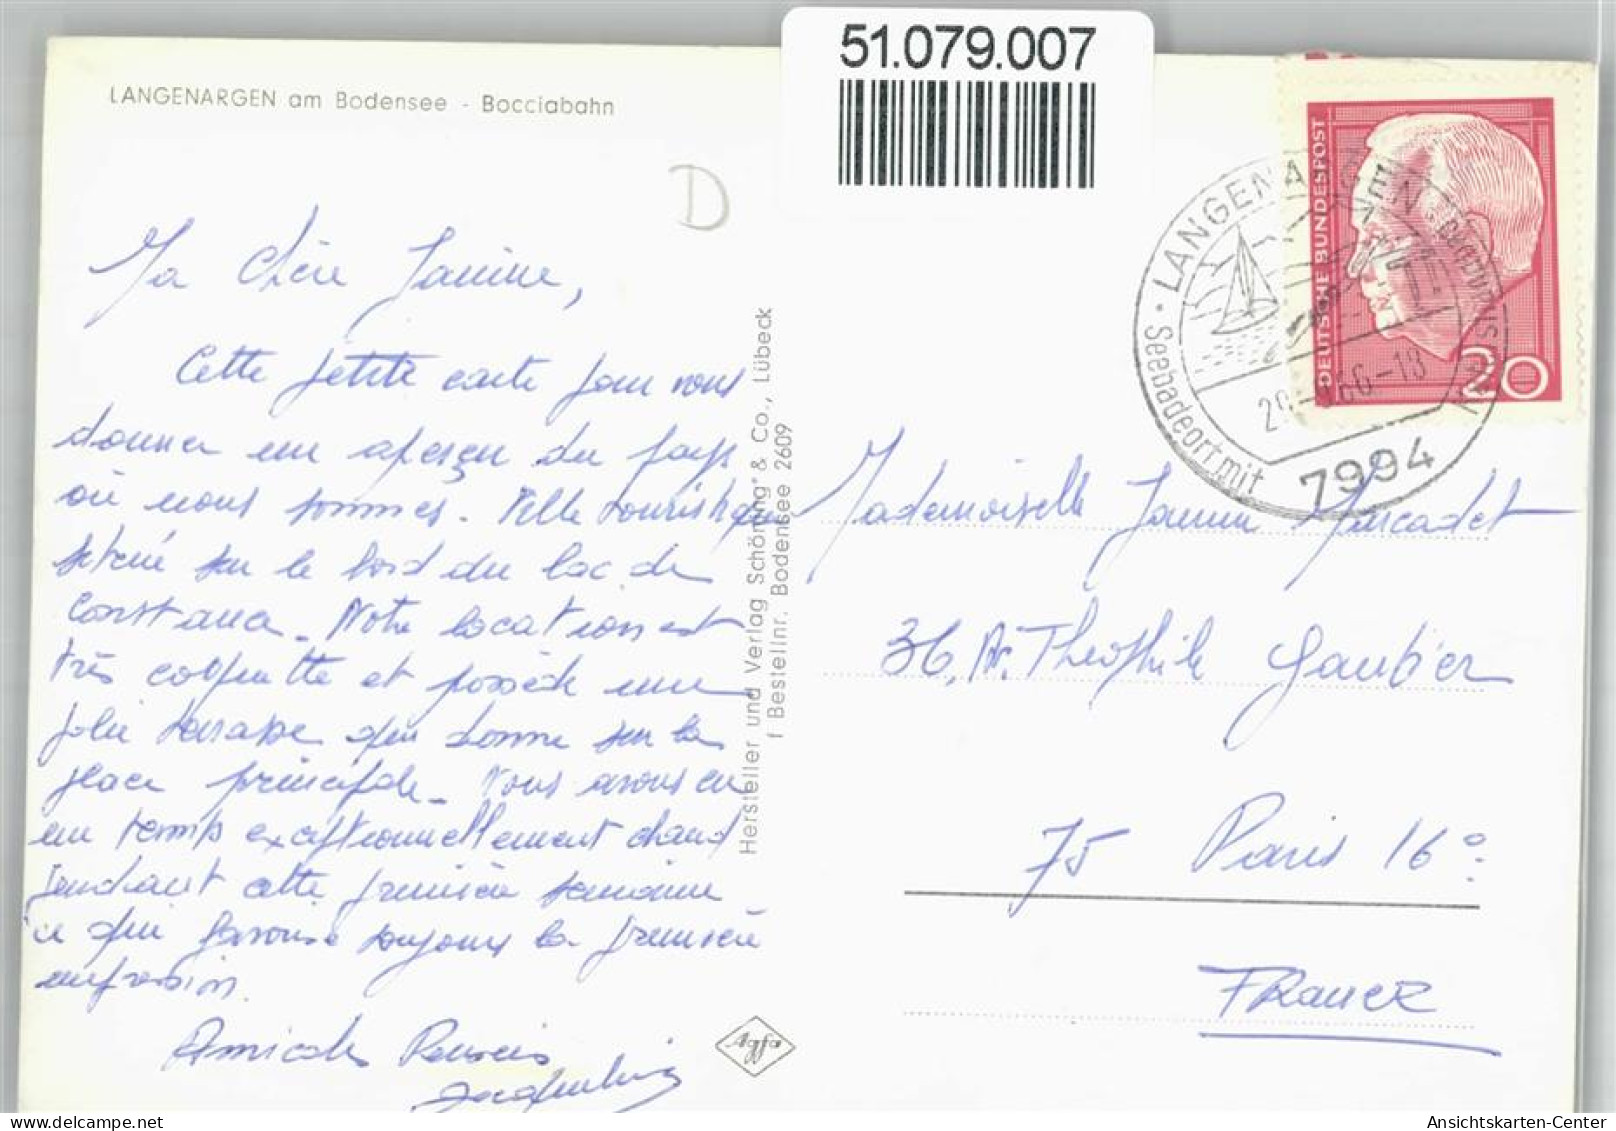 51.079.007
LANGENARGEN am Bodensee - Bocciabahn
D
DEUTSCHE BUNDESPOST
20
LANGENARGEN
Seebadeort mit
-18
7994
Ma chère Janine,
Cette petite carte pour vous
donner un aperçu du pays
où nous sommes. Ville touristique
située sur le bord du lac de
Constance. Notre location est
très coquette et possède une
jolie terrasse qui donne sur la
place principale. Nous avons eu
un temps exceptionnellement chaud
pendant cette première semaine
ce qui favorise toujours la première
impression.
Amicales Pensées
Hersteller und Verlag Schöning & Co., Lübeck
f Bestellnr. Bodensee 2609
Agfa
Mademoiselle Janine
36, Av. Théophile Gautier
75 Paris 16e
FRANCE
Ansichtskarten-Center